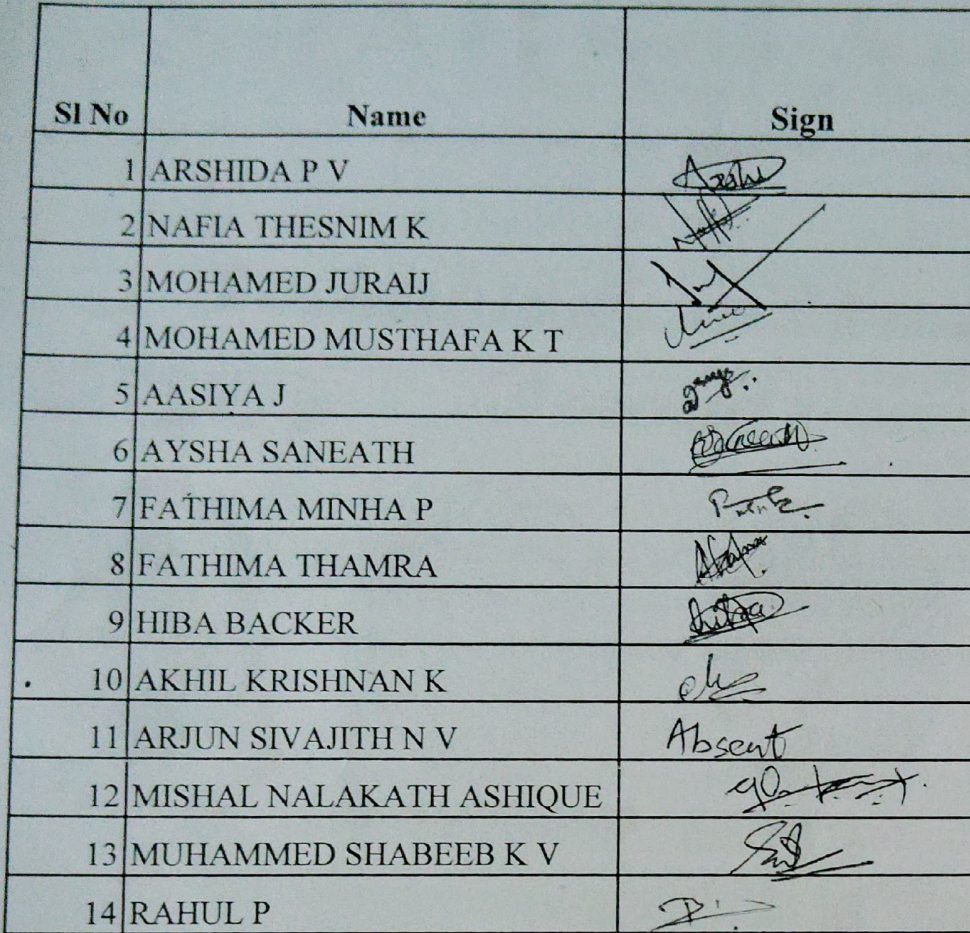 Sl No Name Sign
1 ARSHIDA P V Arshi
2 NAFIA THESNIM K
3 MOHAMED JURAIJ
4 MOHAMED MUSTHAFA K T
5 AASIYA J
6 AYSHA SANEATH
7 FATHIMA MINHA P
8 FATHIMA THAMRA
9 HIBA BACKER
10 AKHIL KRISHNAN K
11 ARJUN SIVAJITH N V Absent
12 MISHAL NALAKATH ASHIQUE
13 MUHAMMED SHABEEB K V
14 RAHUL P